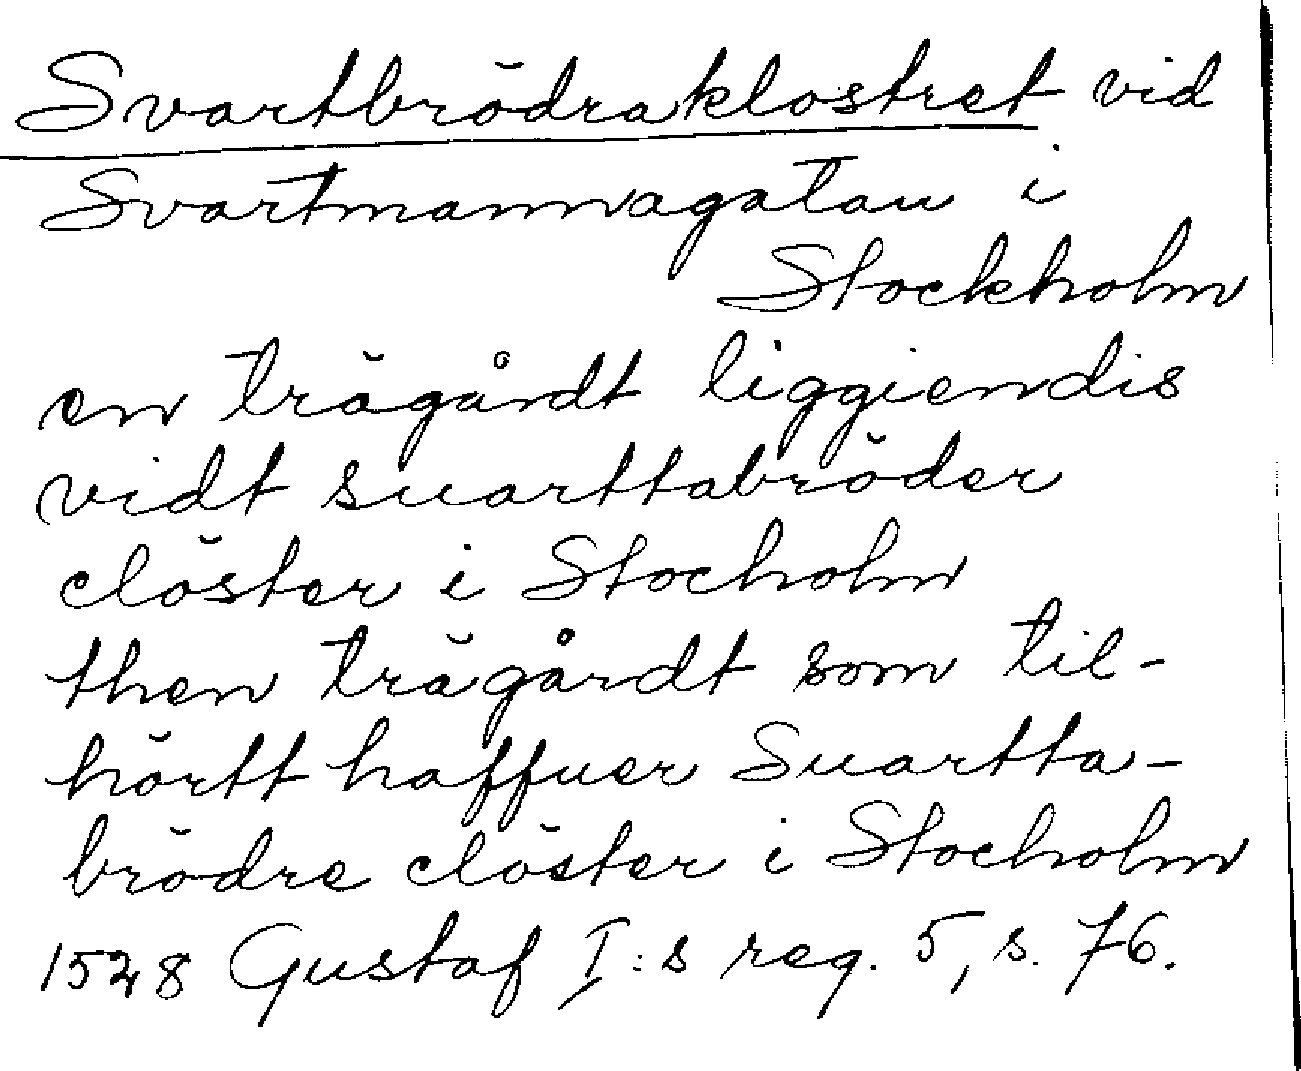 Svartbrödraklostret vid
Svartmannagatan i
Stockholm
en trägårdt liggiendis
vidt suarttabröder
clöster i Stocholm
then trägårdt som til-
hörtt haffuer Suartta-
brödre clöster i Stocholm
1528 Gustaf I:s reg. 5, s. 76.